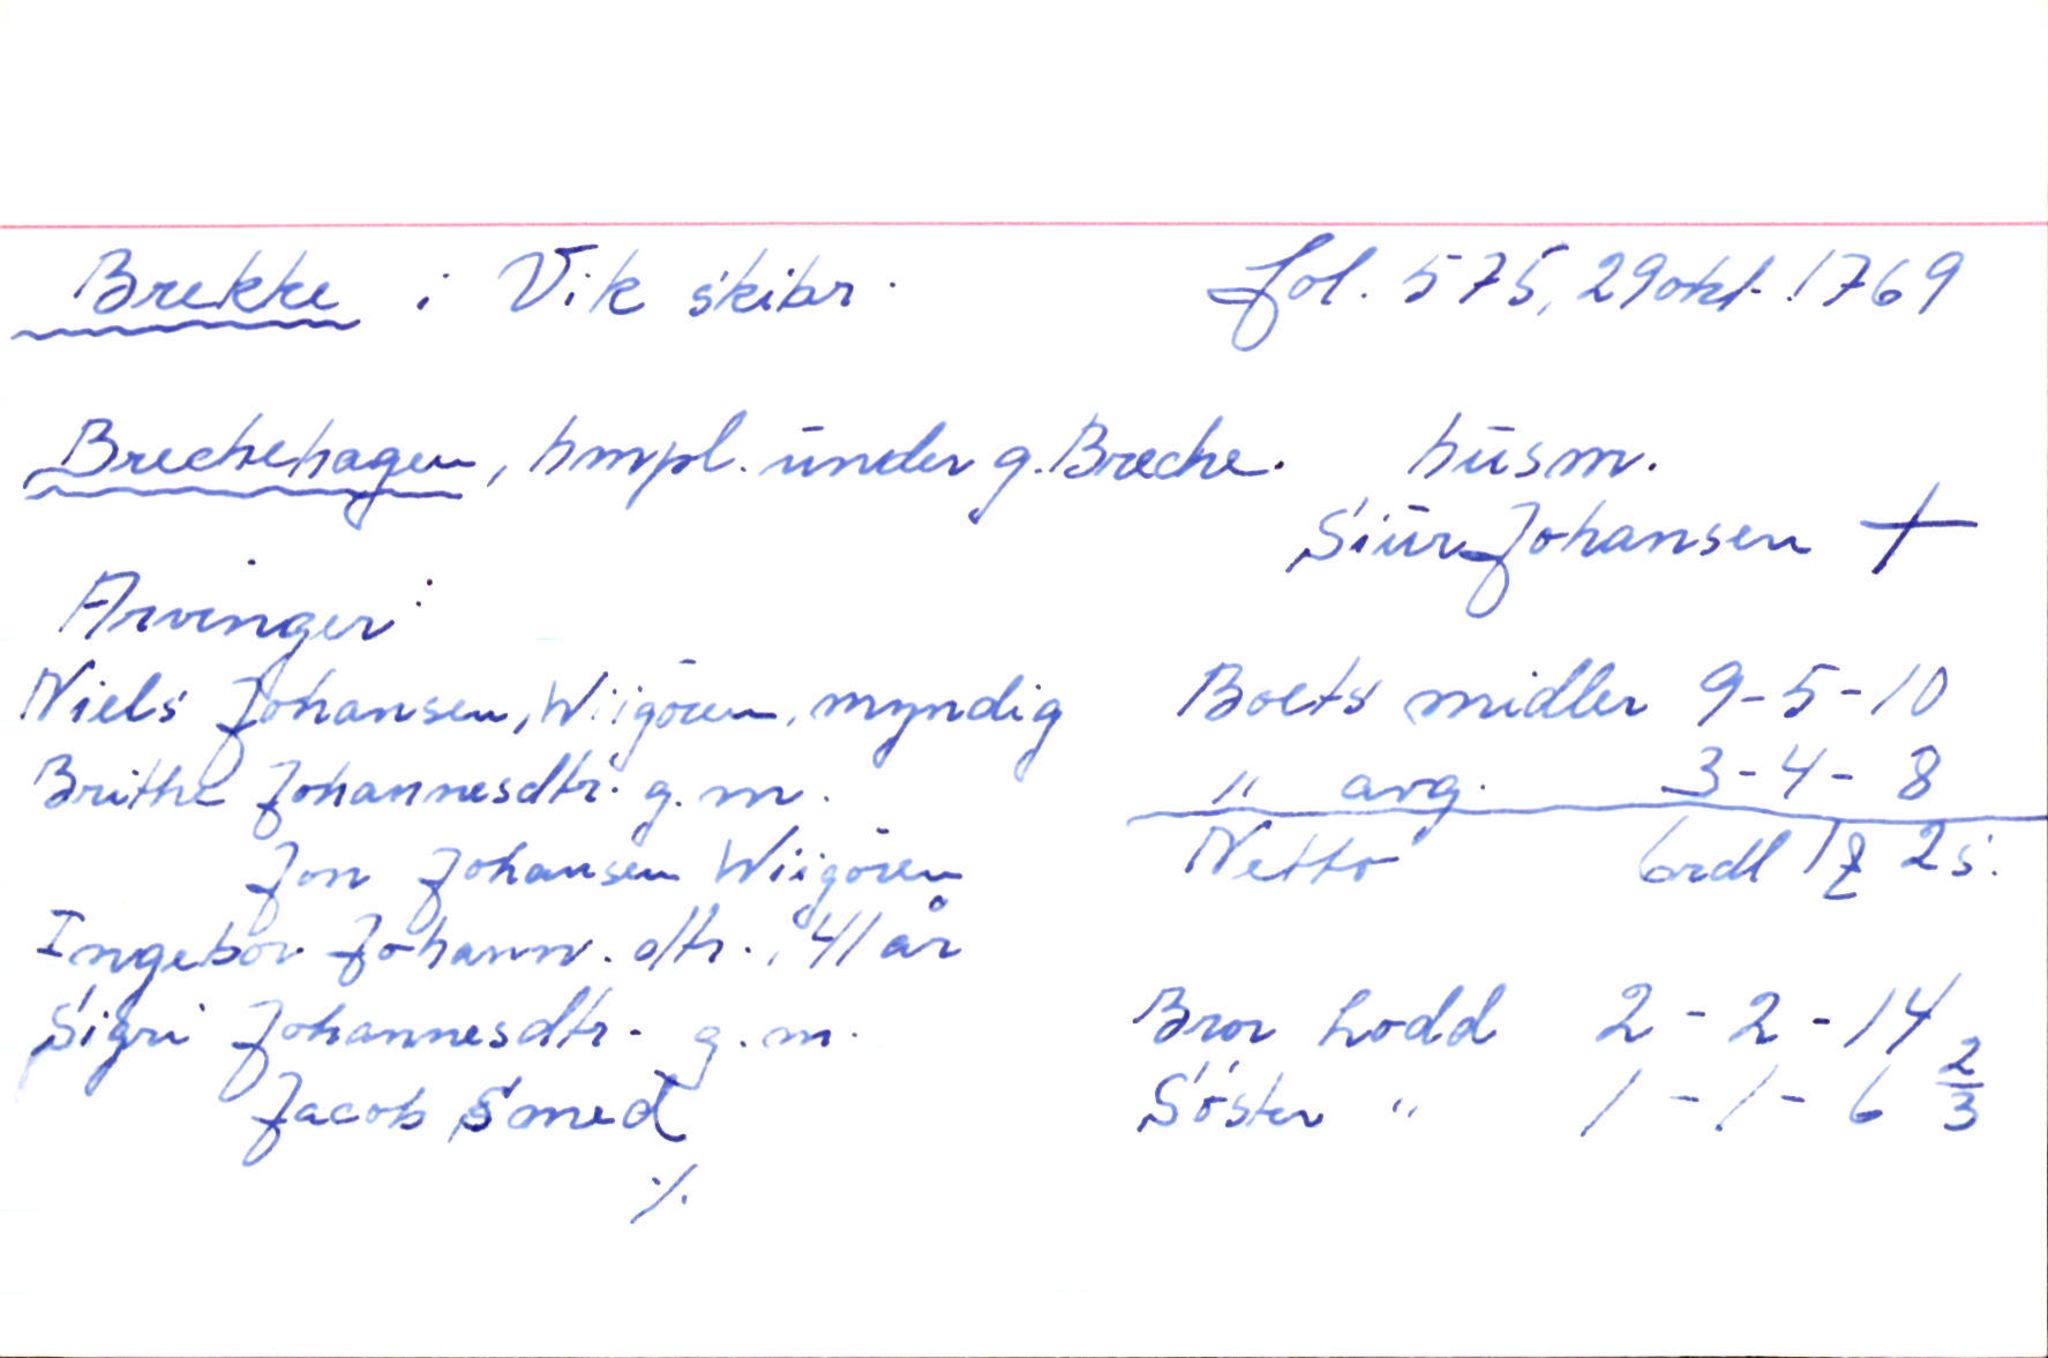 Brekke i Vik skibr. fol. 575, 29 okt. 1769
Brechehagen, hmpl. under g. Breche. husm.
Siur Johansen +
Arvinger:
Niels Johansen, Wiigøren, myndig Boets midler 9-5-10
Brithe Johannesdtr. g. m. " avg. 3-4-8
Jon Johansen Wiigøren Netto 6rdl 1 2s.
Ingebor Johann. dtr., 41 år
Sigri Johannesdtr. g. m. Bror Lodd 2-2-14
Jacob Smed Søster " 1-1-6 2/3
./.